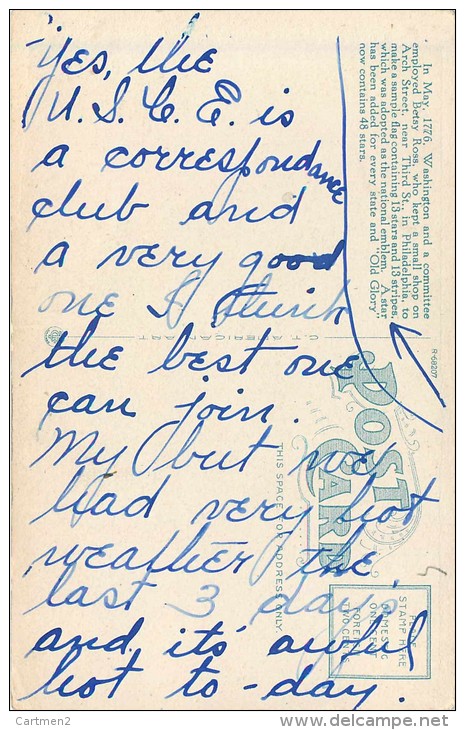 Yes, the
U. S. C. E. is
a correspondance
club and
a very good
one I think
the best one
can join.
My but we
had very hot
weather the
last 3 days
and it's awful
hot to-day.
In May, 1776, Washington and a committee
employed Betsy Ross, who kept a small shop on
Arch Street, near Third St., in Philadelphia, to
make a sample flag containing 13 stars and 13 stripes,
which was adopted as the national emblem. A star
has been added for every state and "Old Glory"
now contains 48 stars.
R-68207
C.T. AMERICAN ART
POST
CARD
THIS SPACE FOR ADDRESS ONLY.
PLACE
STAMP HERE
DOMESTIC
ONE CENT
FOREIGN
TWO CENTS
Cartmen2
delcampe.net